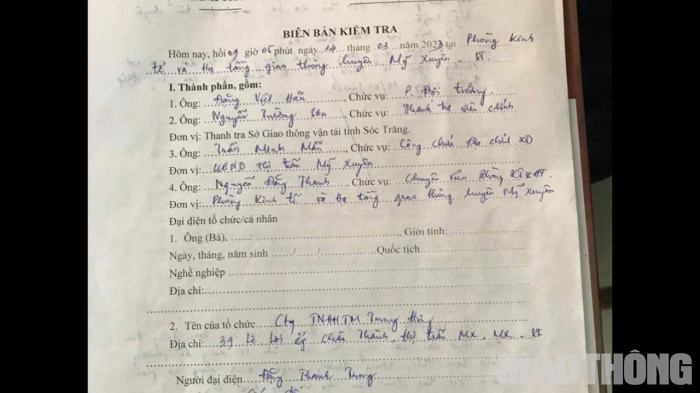 BIÊN BẢN KIỂM TRA
Hôm nay, hồi 09 giờ 05 phút ngày 14 tháng 03 năm 2023 tại Phòng Kinh
tế và Hạ tầng giao thông huyện Mỹ Xuyên - ST.
I. Thành phần, gồm:
1. Ông: Đặng Việt Hẩn, Chức vụ: P. Đội trưởng
2. Ông: Nguyễn Trường Sơn, Chức vụ: Thanh tra viên chính
Đơn vị: Thanh tra Sở Giao thông vận tải tỉnh Sóc Trăng.
3. Ông: Trần Minh Mẫn, Chức vụ: Công chức Địa chính XD
Đơn vị: UBND Thị trấn Mỹ Xuyên
4. Ông: Nguyễn Đăng Thanh, Chức vụ: Chuyên viên Phòng KT&HT
Đơn vị: Phòng Kinh tế và Hạ tầng giao thông huyện Mỹ Xuyên
Đại diện tổ chức/cá nhân
1. Ông (Bà), Giới tính:
Ngày, tháng, năm sinh / / Quốc tịch
Nghề nghiệp
Địa chỉ:
2. Tên của tổ chức Cty TNHHTM Trung Hưng
Địa chỉ: 39 Lê Lợi ấp Châu Thành, thị trấn MX, MX, ST
Người đại diện Đặng Thanh Trung
GIAOTHÔNG